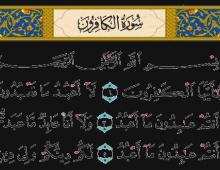 سُورَةُ الكَافِرُونَ
بِسْمِ اللَّهِ الرَّحْمَٰنِ الرَّحِيمِ
الْكَافِرُونَ ١ لَا أَعْبُدُ مَا تَعْبُدُونَ
أَنتُمْ عَابِدُونَ مَا أَعْبُدُ ٣ وَلَا أَنَا عَابِدٌ مَّا عَبَدتُّمْ
أَنتُمْ عَابِدُونَ مَا أَعْبُدُ ٥ لَكُمْ دِينُكُمْ وَلِيَ دِينِ